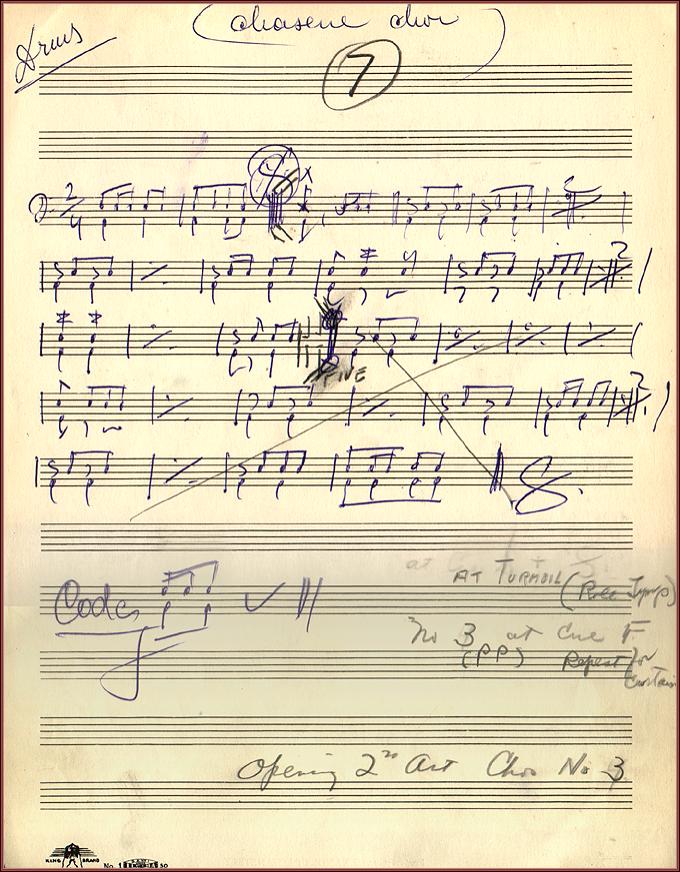 (chasene chor)
Drums
7
2/4
2
FINE
2
Coda
AT TURMOIL (Rec Tymp)
No 3 at Cue F
(PP) Repeat for
Curtain
Opening 2nd Act Chor No 3
KING BRAND No. 1